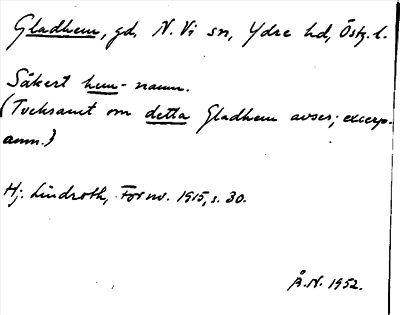 Gladhem, gd, N. Vi sn, Ydre hd, Östg. l.
Säkert hem-namn.
(Tveksamt om detta Gladhem avses; excerp.-
anm.)
Hj. Lindroth, Fornv. 1915, s. 30.
Å.N. 1952.